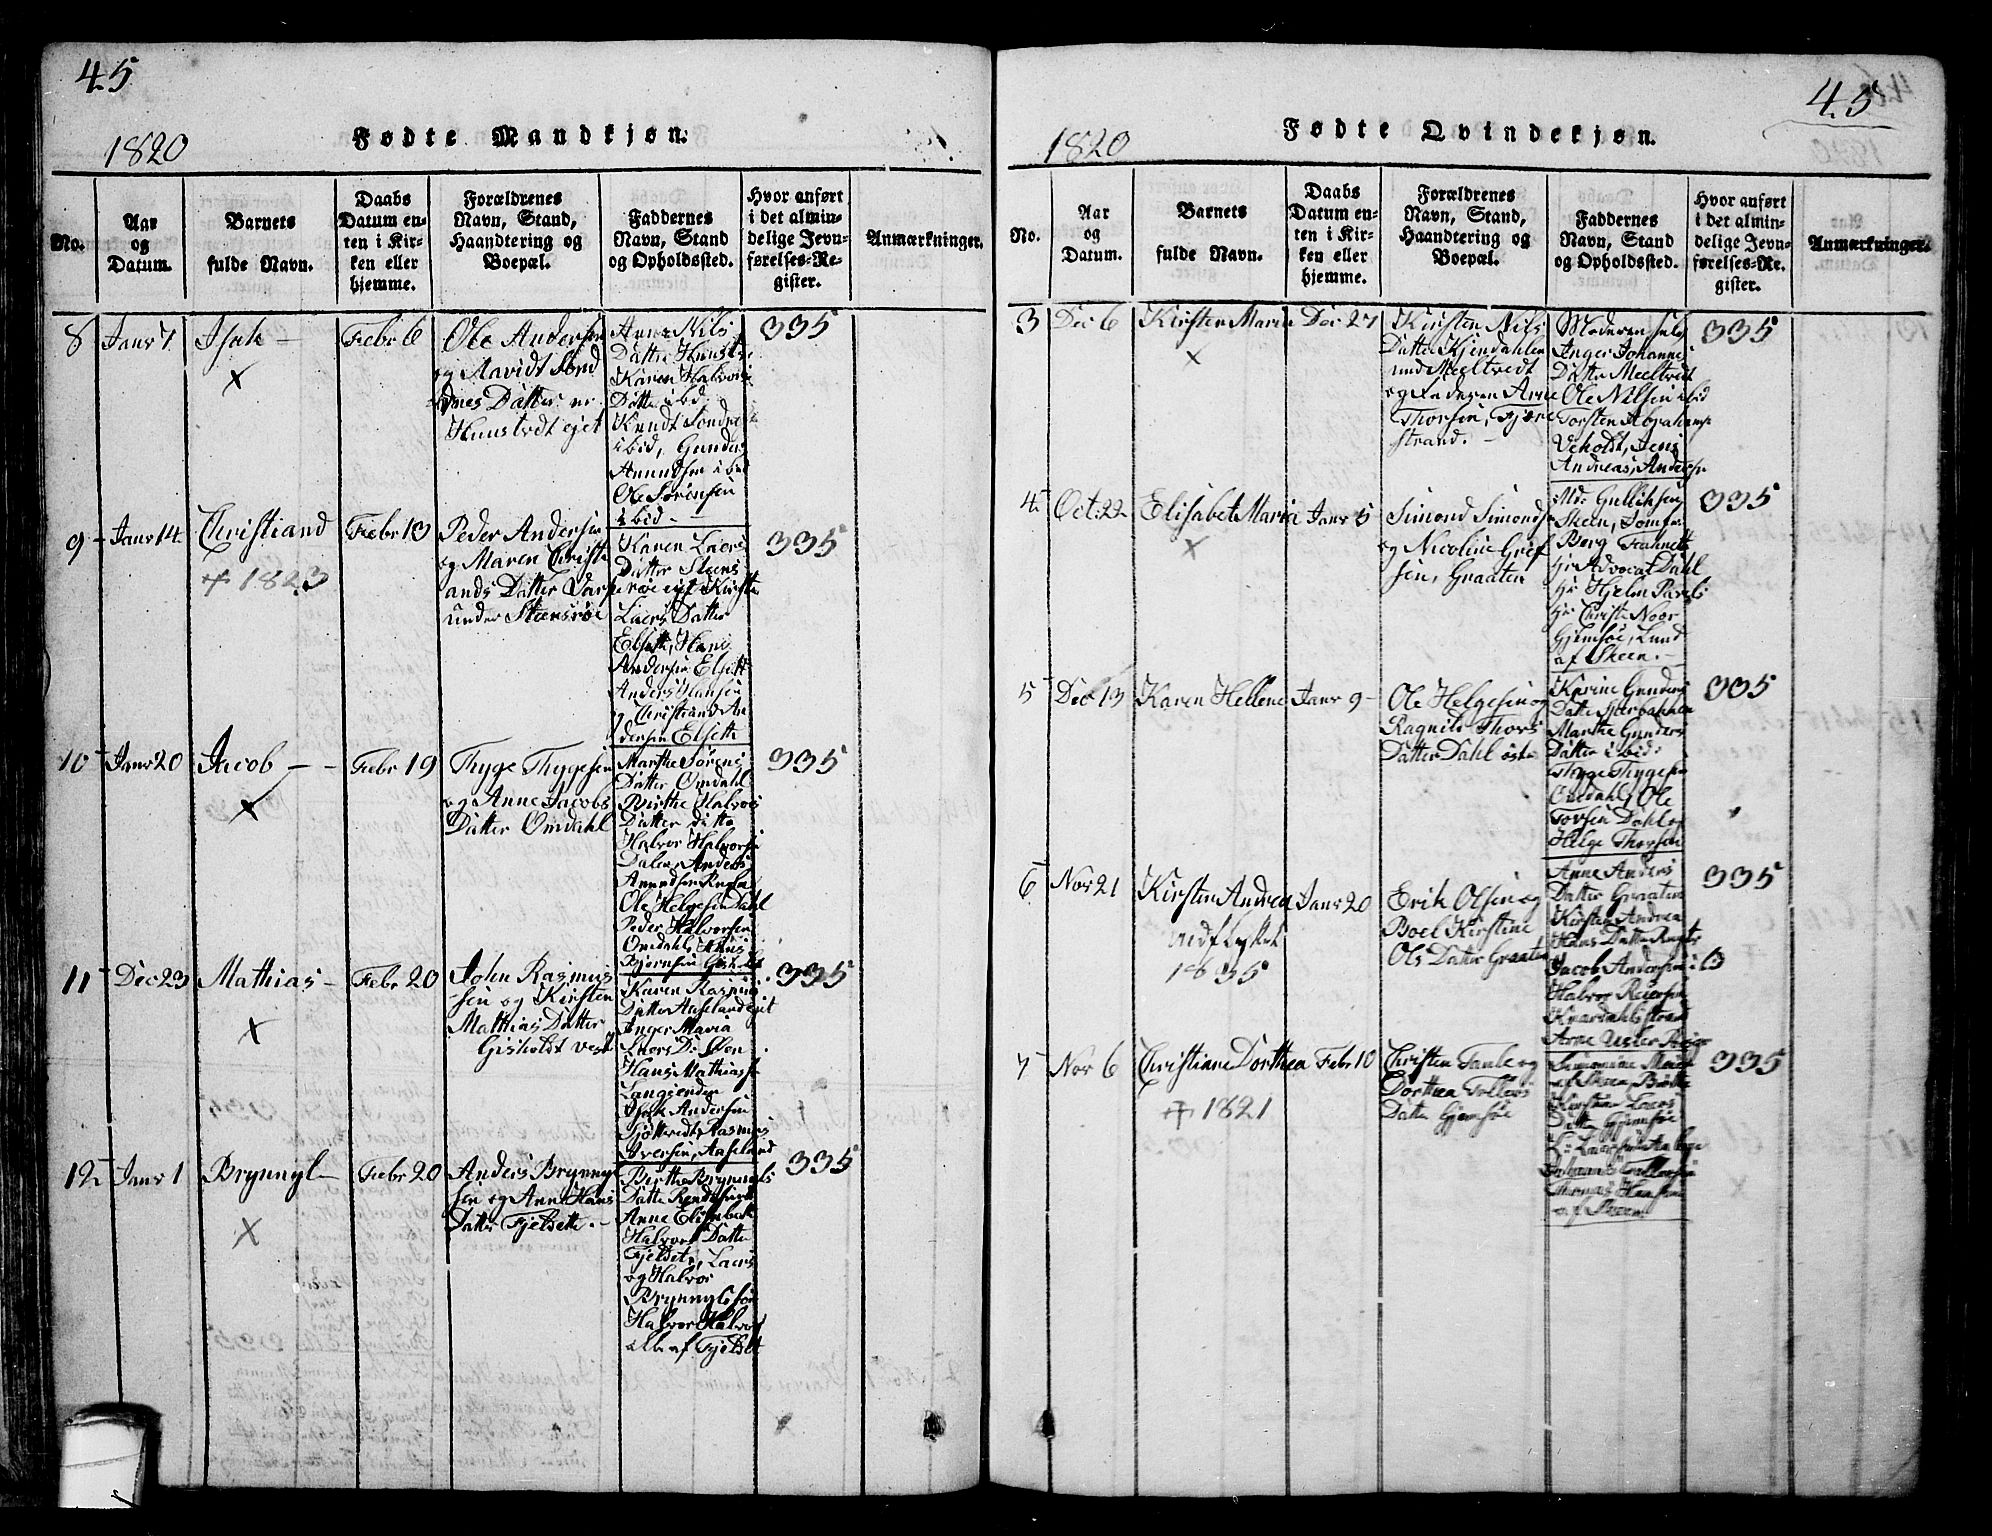 45
1820
Fødte Mandkjøn.
No.
Aar
og
Datum.
Barnets
fulde Navn.
Daabs
Datum en-
ten i Kir-
ken eller
hjemme.
Forældrenes
Navn, Stand,
Haandtering og
Boepæl.
Faddernes
Navn, Stand
og Opholdssted.
Hvor anført
i det almin-
delige Jevn-
førelses-Re-
gister.
Anmærkninger.
8
Janr 7
Isak
Febr 6
Ole Andersen
og
Datter
Anne Nils
Datter
Karen Halvors
Datter ibid
ibid, Gunder
ibid
Ole Sørensen
ibid
335
9
Janr 14
Christiand
+ 1823
Febr 13
Peder Andersen
og Maren Christi
ands Datter
under Steensrøe
Karen Laers
Datter Steens
røe eiet Kirsten
Laers Datter
Elsette, Hans
Andersen Elsett
Anders Hansen
og Christiand An
dersen Elsette
335
10
Janr 20
Jacob
Febr 19
Thyge Thygesen
og Anne Jacobs
Datter Omdahl
Marthe Sørens
Datter Omdahl
Birthe Halvors
Datter ditto
Halvor Halvorsen
Dalen, Anders
Ole Helgesen Dahl
Peder Halvorsen
Omdahl,
Bjørnsen Gisholt
335
11
Dec 23
Mathias
Febr 20
John Rasmus
sen og Kirsten
Mathias Datter
Gisholdt vest
Karen Rasmus
Datter Aaseland eiet
Inger Maria
Laers D:
Hans Mathiass
Langjender
Isak Andersen
Rasmus
Iversen, Aaseland
335
12
Janr 1
Brynnyl
Febr 20
Anders Brynnyl
sen og Anne Hans
Datter Fjeldsette
Birthe Brynnyls
Datter
Anne Elisabeth
Halvors Datter
Fjeldsete, Laers
og Halvor
Brynnylsen
Halvor Halvors
alle af Fjeldset
335
45
1820
Fødte Qvindekjøn.
No.
Aar
og
Datum.
Barnets
fulde Navn.
Daabs
Datum en-
ten i Kir-
ken eller
hjemme.
Forældrenes
Navn, Stand,
Haandtering og
Boepæl.
Faddernes
Navn, Stand
og Opholdssted.
Hvor anført
i det almin-
delige Jevn-
førelses-Re-
gister.
Anmærkninger.
3
Dec 6
Kirsten Maria
Dec 27
Kirsten Nils
Datter Kjendahlen
und Meeltvedt
og Faderen Arne
Thorsen, Fjære
strand.
Moderen selv
Inger Johannes
Datter Meeltvedt
Ole Nilsen ibid
Torsten Abrahams
Veholdt, Jens
Andreas, Anders
335
4
Oct. 22
Elisabet Maria
Janr 5
Simond Simonds
og Nicoline Gref
sen, Graaten
Md: Gulliksen
Skeen, Jomfr.
Borg
Hr Advocat Dahl
Hr Hjelm
Hr Christi Noor
Gjemsøe, Lund
af Skeen.
335
5
Dec 13
Karen Hellene
Janr 9
Ole Helgesen og
Ragnild Thors
Datter Dahl øste
Karine Gunders
Datter
Marthe Gunders
Datter ibid
Thyge Thygesen
Omdahl, Ole
Torsen Dahl og
Helge Thorsen
335
6
Nov 21
Kirsten Andrea
udflyttet
1835
Janr 20
Erik Olsen og
Boel Kirstine
Ols Datter Graaten
Anne Anders
Datter Graaten
Kirsten Andrea
Hans Datter
Jacob Andersen ib
Halvor Reiersen
Knardahlsstrand
Arne
335
7
Nov 6
Christiane Dorthea
+ 1821
Febr 10
Christen og
Dorthea Tollevs
Datter Gjemsøe
af Skeen,
Kirstine Laers
Datter Gjemsøe
Thomas Hansen
af Skeen
335